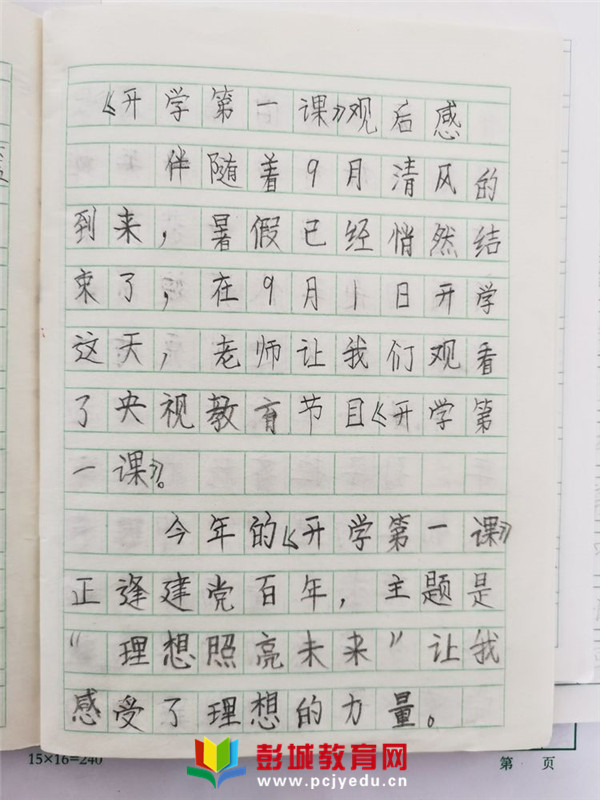 《开学第一课》观后感
伴随着9月清风的
到来，暑假已经悄然结
束了，在9月1日开学
这天，老师让我们观看
了央视教育节目《开学第
一课》。
今年的《开学第一课》
正逢建党百年，主题是
“理想照亮未来”让我
感受了理想的力量。
15×16=240
第 页
彭城教育网
www.pcjyedu.cn